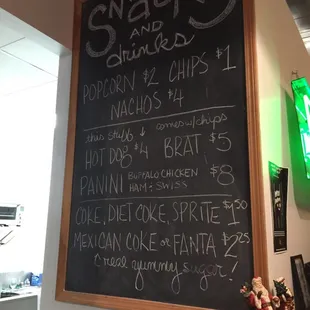 Snacks
AND
drinks
POPCORN $2 CHIPS $1
NACHOS $4
this stuff ↓ comes w/chips
HOT DOG $4 BRAT $5
PANINI BUFFALO CHICKEN $8
HAM & SWISS
COKE, DIET COKE, SPRITE $1.50
MEXICAN COKE or FANTA $2.25
real yummy sugar!